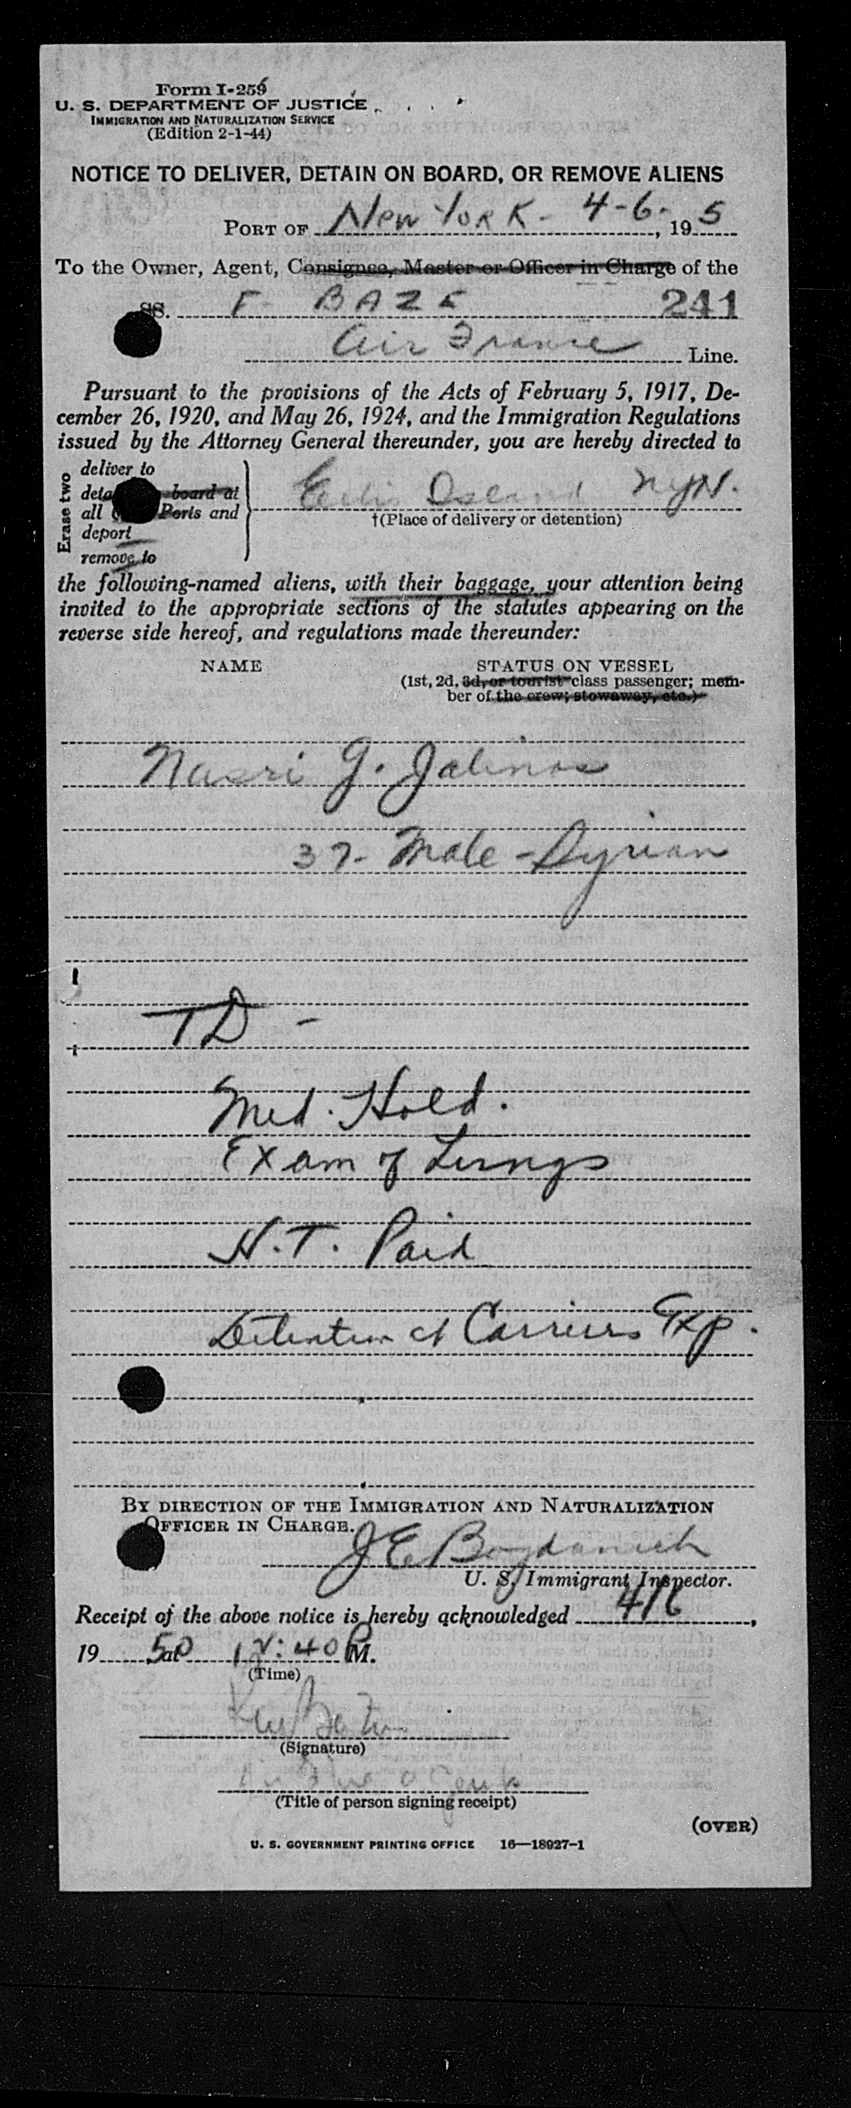 Form I-259
U. S. DEPARTMENT OF JUSTICE
IMMIGRATION AND NATURALIZATION SERVICE
(Edition 2-1-44)
NOTICE TO DELIVER, DETAIN ON BOARD, OR REMOVE ALIENS
PORT OF New York - 4-6-, 195
To the Owner, Agent, Consignee, Master or Officer in Charge of the
SS. F- BAZE 241
Air France Line.
Pursuant to the provisions of the Acts of February 5, 1917, De-
cember 26, 1920, and May 26, 1924, and the Immigration Regulations
issued by the Attorney General thereunder, you are hereby directed to
Erase two
deliver to
board at
all Ports and
deport
remove to
Ellis Island NYH.
†(Place of delivery or detention)
the following-named aliens, with their baggage, your attention being
invited to the appropriate sections of the statutes appearing on the
reverse side hereof, and regulations made thereunder:
NAME STATUS ON VESSEL
(1st, 2d, 3d, or tourist class passenger; mem-
ber of the crew; stowaway, etc.)
Nasri G. Jalinos
37- Male - Syrian
TD -
Med. Hold.
Exam of Lungs
H.T. Paid
Detention at Carriers Exp.
BY DIRECTION OF THE IMMIGRATION AND NATURALIZATION
OFFICER IN CHARGE.
J E Bogdanich
U. S. Immigrant Inspector.
Receipt of the above notice is hereby acknowledged 4/6,
19 50 at 12:40 P M.
(Time)
(Signature)
(Title of person signing receipt)
(OVER)
U. S. GOVERNMENT PRINTING OFFICE 16—18927-1